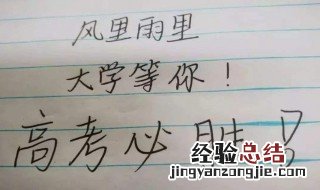 风里雨里
大学等你！
高考必胜！
经验总结
www.jingyanzongjie.com